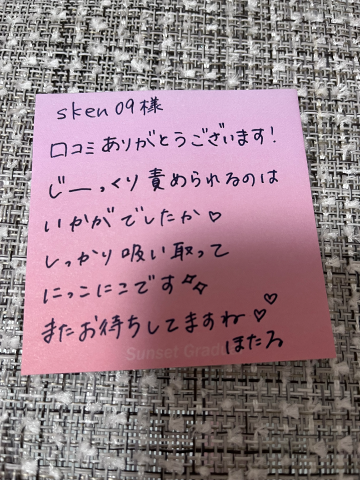 sken09様
口コミありがとうございます!
じーっくり責められるのは
いかがでしたか♡
しっかり吸い取って
にっこにこです✨
またお待ちしてますね♡♡
ほたる
Sunset Grad